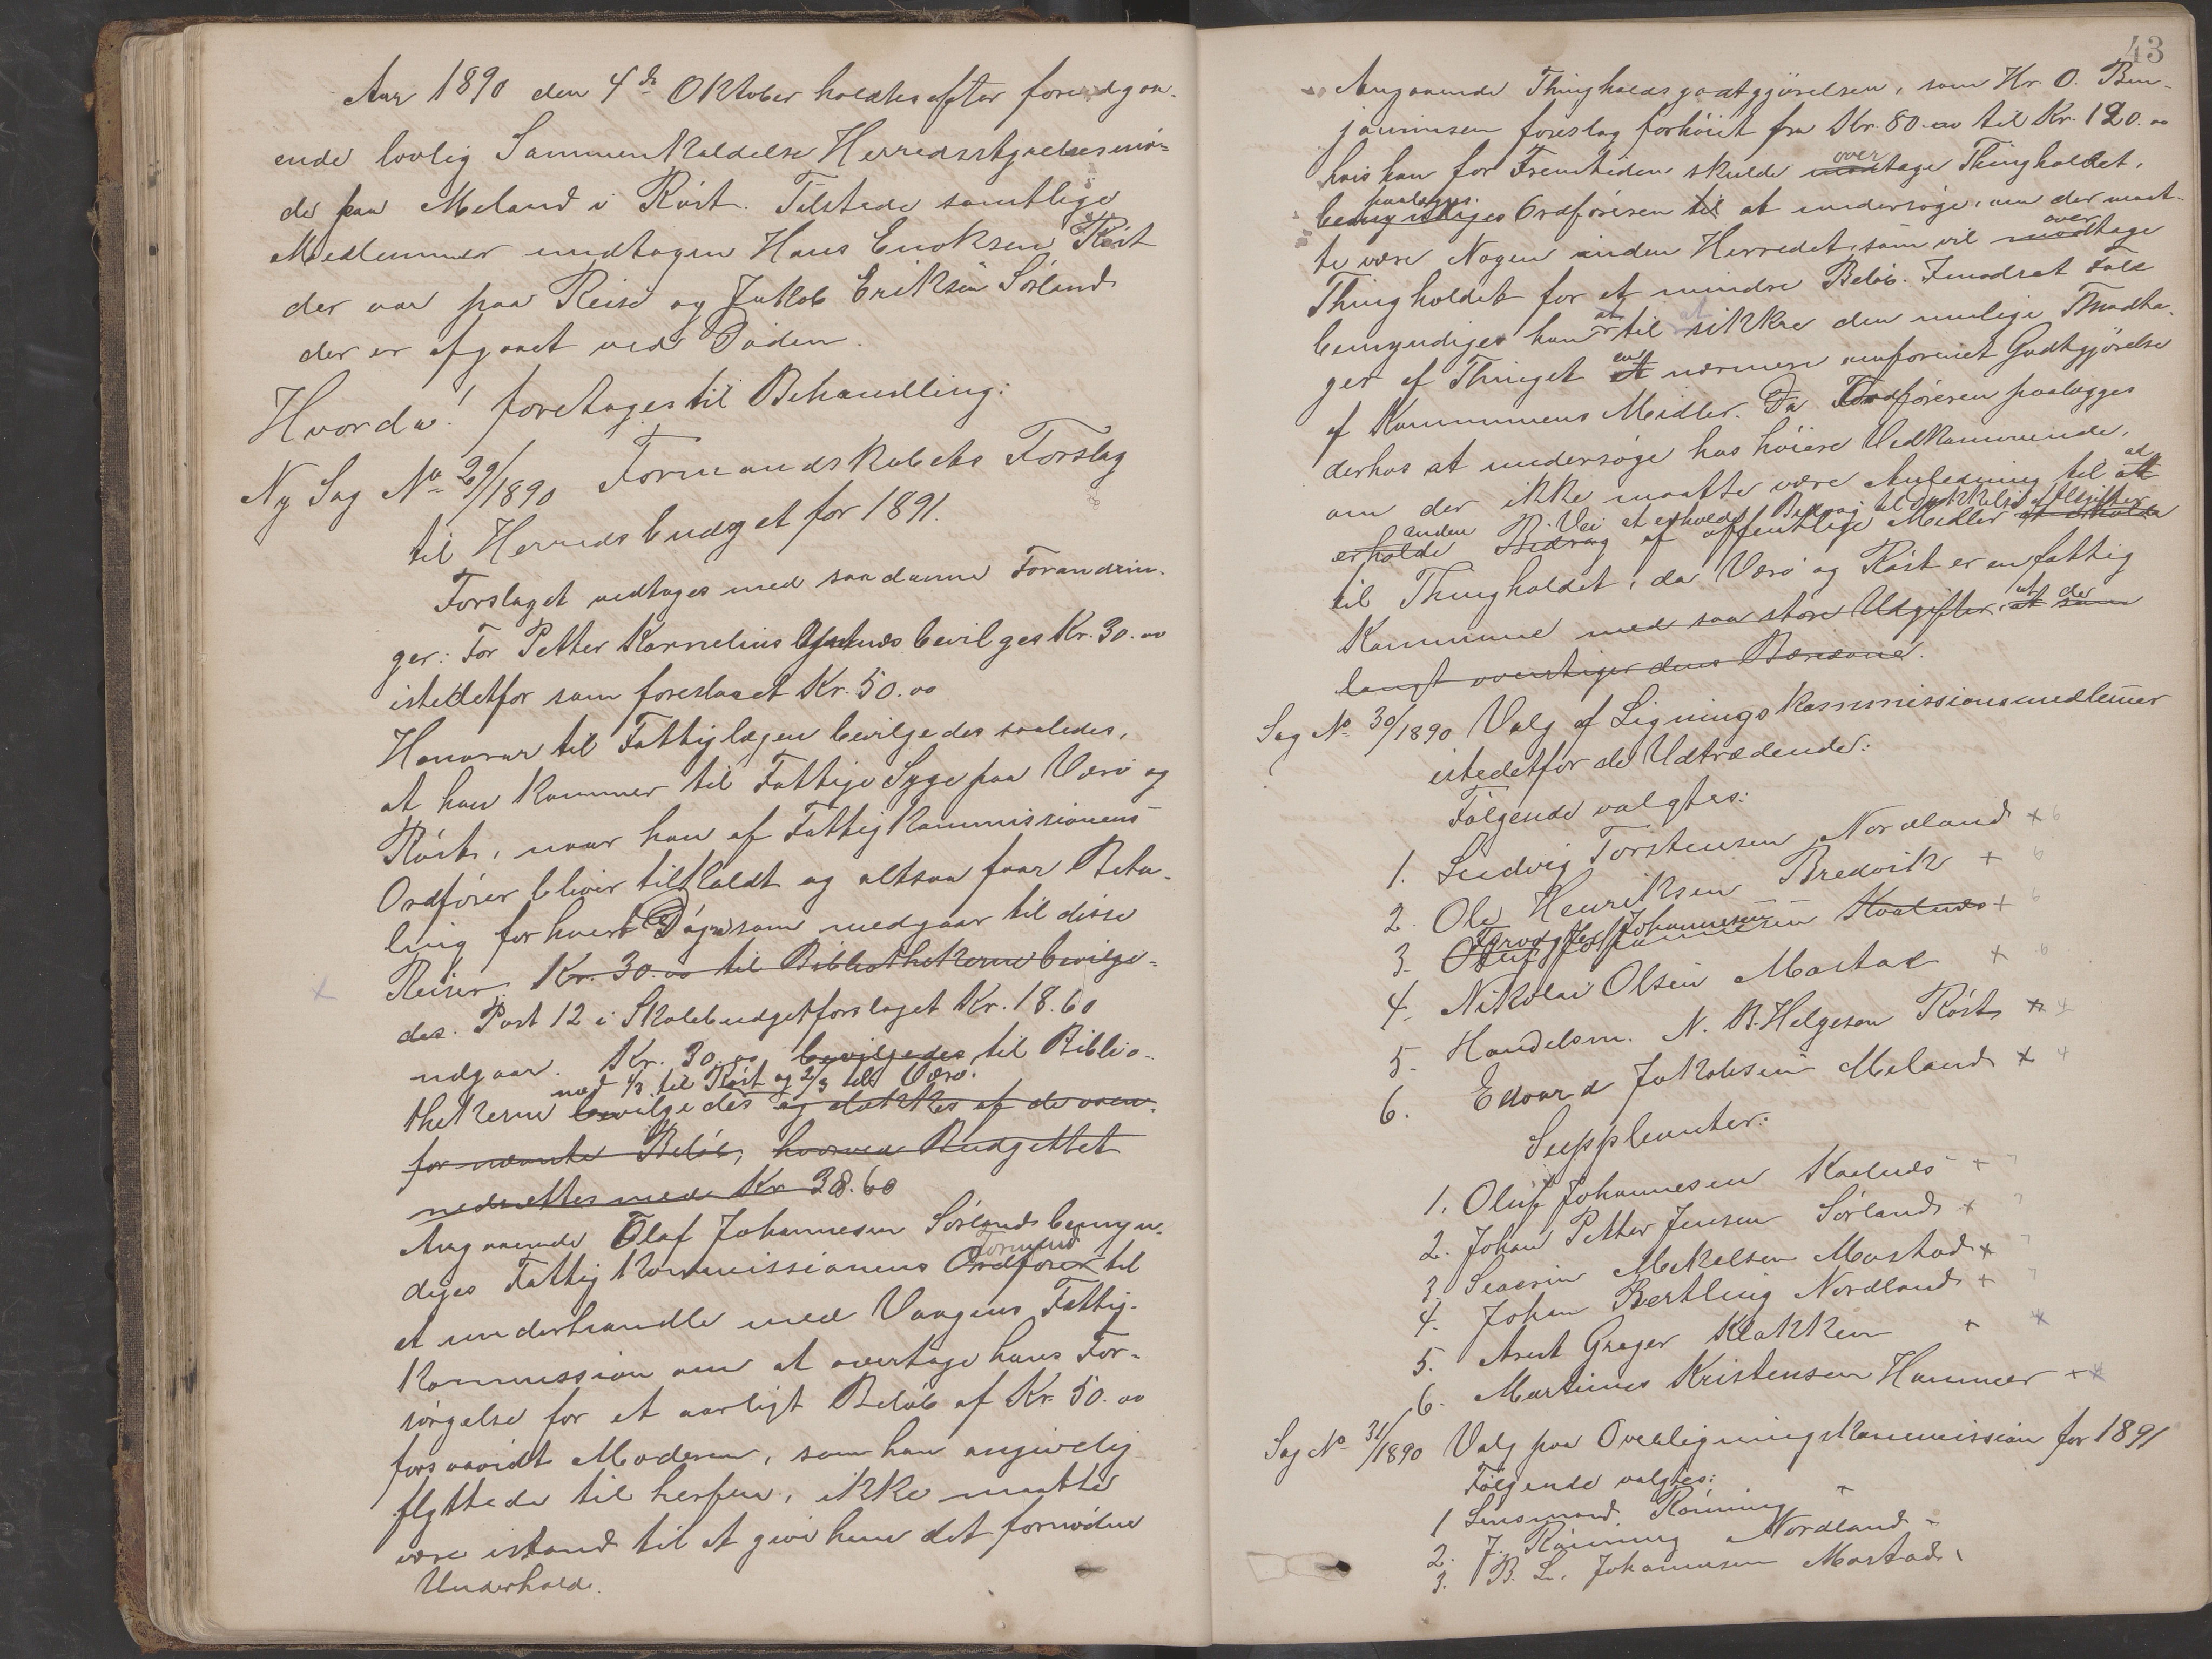 Aar 1890 den 4de Oktober holdtes efter foreudgaa-
ende lovlig Sammenkaldelse Herredsstyrelsesmø-
de paa Meland i Røst. Tilstede samtlige
Medlemmer undtagen Hans Enoksen Røst
der var paa Reise og Jakob Eriksen Sørland
der er afgaaet ved Døden.
Hvorda! foretages til Behandling:
Ny Sag No 29/1890 Formandskabets Forslag
til Herredsbudget for 1891.
Forslaget vedtages med saadanne Forandrin-
ger: For Petter Kornelius bevilges Kr. 30.00
istedetfor som foreslaaet Kr. 50.00
Honorar til Fattiglægen bevilgedes saaledes,
at han kommer til Fattige Syge paa Værø og
Røst, naar han af Fattigkommissionens
Ordfører bliver tilkaldt og altsaa faar Beta-
ling for hvert Døgn som medgaar til disse
Reiser. Kr. 30.00 til Bibliothekerne bevilge-
des. Post 12 i Skolebudgetforslaget Kr. 18.60
udgaar. Kr. 30.00 bevilgedes til Biblio-
med 1/3 til Røst og 2/3 till Værø.
thekerne bevilgedes og dækkes af de oven-
for nævnte Beløb, hvorved Budgettet
nedsættes med Kr 38.60
Angaaende Olaf Johannesen Sørland bemyn-
Formand
diges Fattigkommissionens Ordfører til
at underhandle med Vaagens Fattig-
kommission om at overtage hans For-
sørgelse for et aarligt Beløb af Kr. 50.00
forsaavidt Moderen, som han angivelig
flyttede til herfra, ikke maatte
være istand til at give ham det fornødne
Underhold.
43
Angaaende Thingholdsgodtgjørelsen, som Hr. O. Ben-
jaminsen foreslog forhøiet fra Kr. 80.00 til Kr. 120.00
over
hvis han for Fremtiden skulde modtage Thingholdet,
paalægges
bemyndiges Ordføreren til at undersøge, om der maat-
over
te være Nogen inden Herredet, som vil modtage
Thingholdet for et mindre Beløb. I modsat Fald
at at
bemyndiges han til sikkre den mulige Modta-
en
ger af Thinget et nærmere omforenet Godtgjørelse
af Kommunens Midler. Da Ordføreren paalægges
derhos at undersøge hos høiere Vedkommende,
ad
om der ikke maatte være Anledning til at
anden Vei at erholde Bidrag til Dækkelse af Udgifter
erholde Bidrag af offentlige Midler at erholde
til Thingholdet, da Værø og Røst er en fattig
ut der
Kommune med saa store Udgifter, at som
langt overstiger dens Bæreevne.
Sag No 30/1890 Valg af Ligningskommissionsmedlemer
istedetfor de Udtrædende:
Følgende valgtes:
1. Ludvig Torstensen Nordland × 6
2. Ole Henriksen Bredvik + 6
3. Oluf Johannesen Kvalnes + 6
4. Nikolai Olsen Mostad × 6
5. Handelsm. N. B. Helgesen Røst × 4
6. Edvard Jakobsen Meland × 4
Suppleanter:
1. Oluf Johannesen Kvalnæs + 7
2. Johan Petter Jensen Sørland + 7
3. Severin Mekelsen Mostad × 7
4. Johan Bertling Nordland + 7
5. Arnt Greger Klakken + 4
6. Martinus Kristensen Hammer + 4
Sag No 31/1890 Valg paa Overligningskommission for 1891
Følgende valgtes:
1 Lensmand Rønning
2. J. Rønning Nordland
3. B. L. Johannesen Mostad